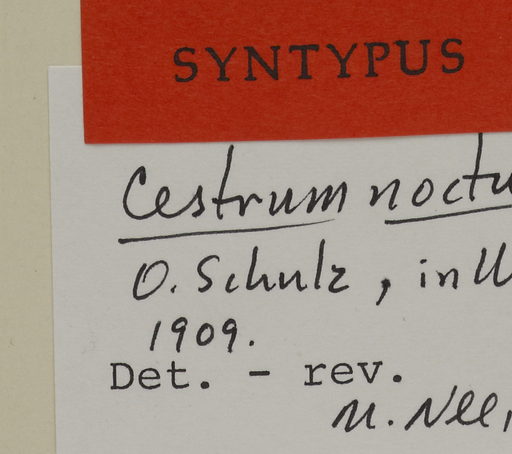 SYNTYPUS
Cestrum noctu
O. Schulz, in U
1909.
Det. - rev.
M. Nee,